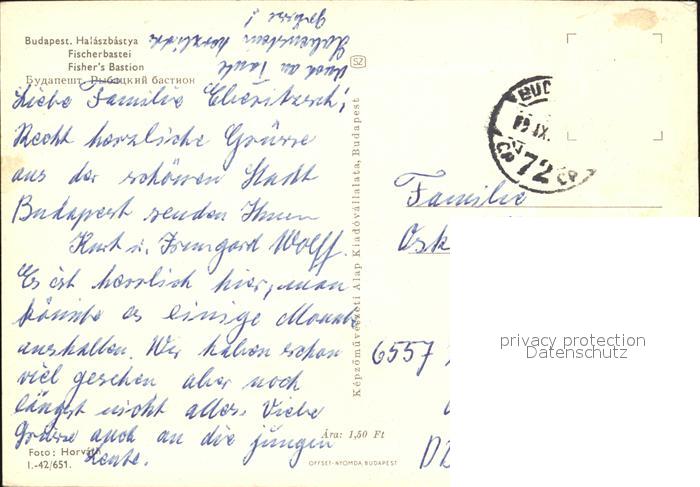 Budapest. Halászbástya
Fischerbastei
Fisher's Bastion
Будапешт. Рыбацкий бастион
Auch an Tante
herzliche
Grüsse!
SZ
Liebe Familie
Recht herzliche Grüsse
aus der schönen Stadt
Budapest senden Ihnen
Kurt u. Irmgard Wolff.
Es ist herrlich hier, man
könnte es einige Monate
aushalten. Wir haben schon
viel gesehen aber noch
längst nicht alles. Viele
Grüsse auch an die jungen
Leute.
Foto: Horváth
I.-42/651.
Ára: 1,50 Ft
OFFSET-NYOMDA BUDAPEST
Képzőművészeti Alap Kiadóvállalata, Budapest
BUD
72
Familie
Osk
6557
D
privacy protection
Datenschutz